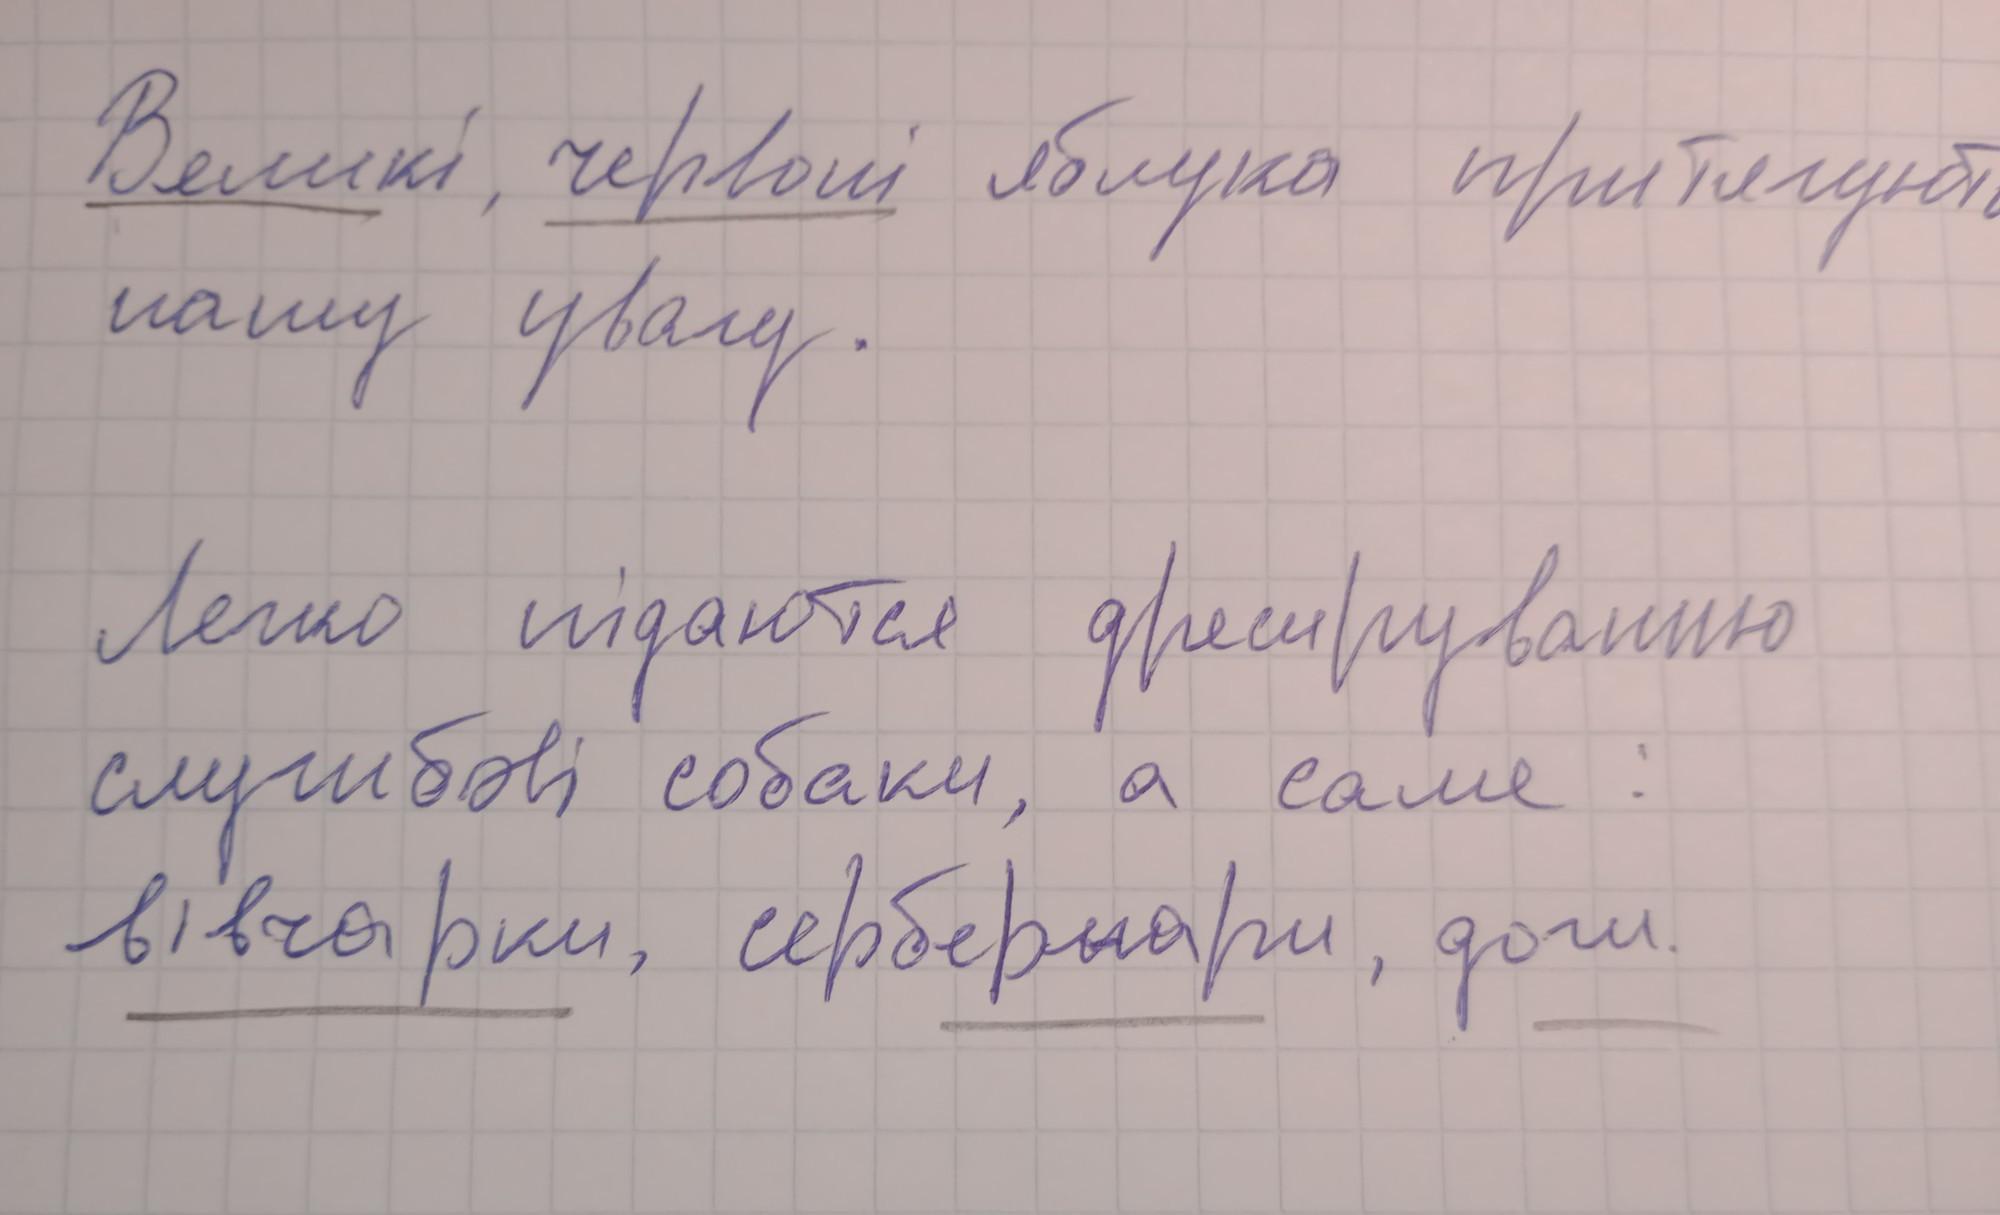 Великі, червоні яблука притягують
нашу увагу.
Легко підаются дресируванню
службові собаки, а саме :
вівчарки, сербернари, доги.